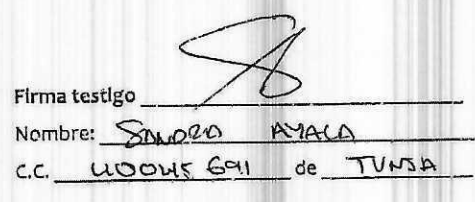 Firma testigo
Nombre: SANDRA AYALA
C.C. 40045 691 de TUNJA